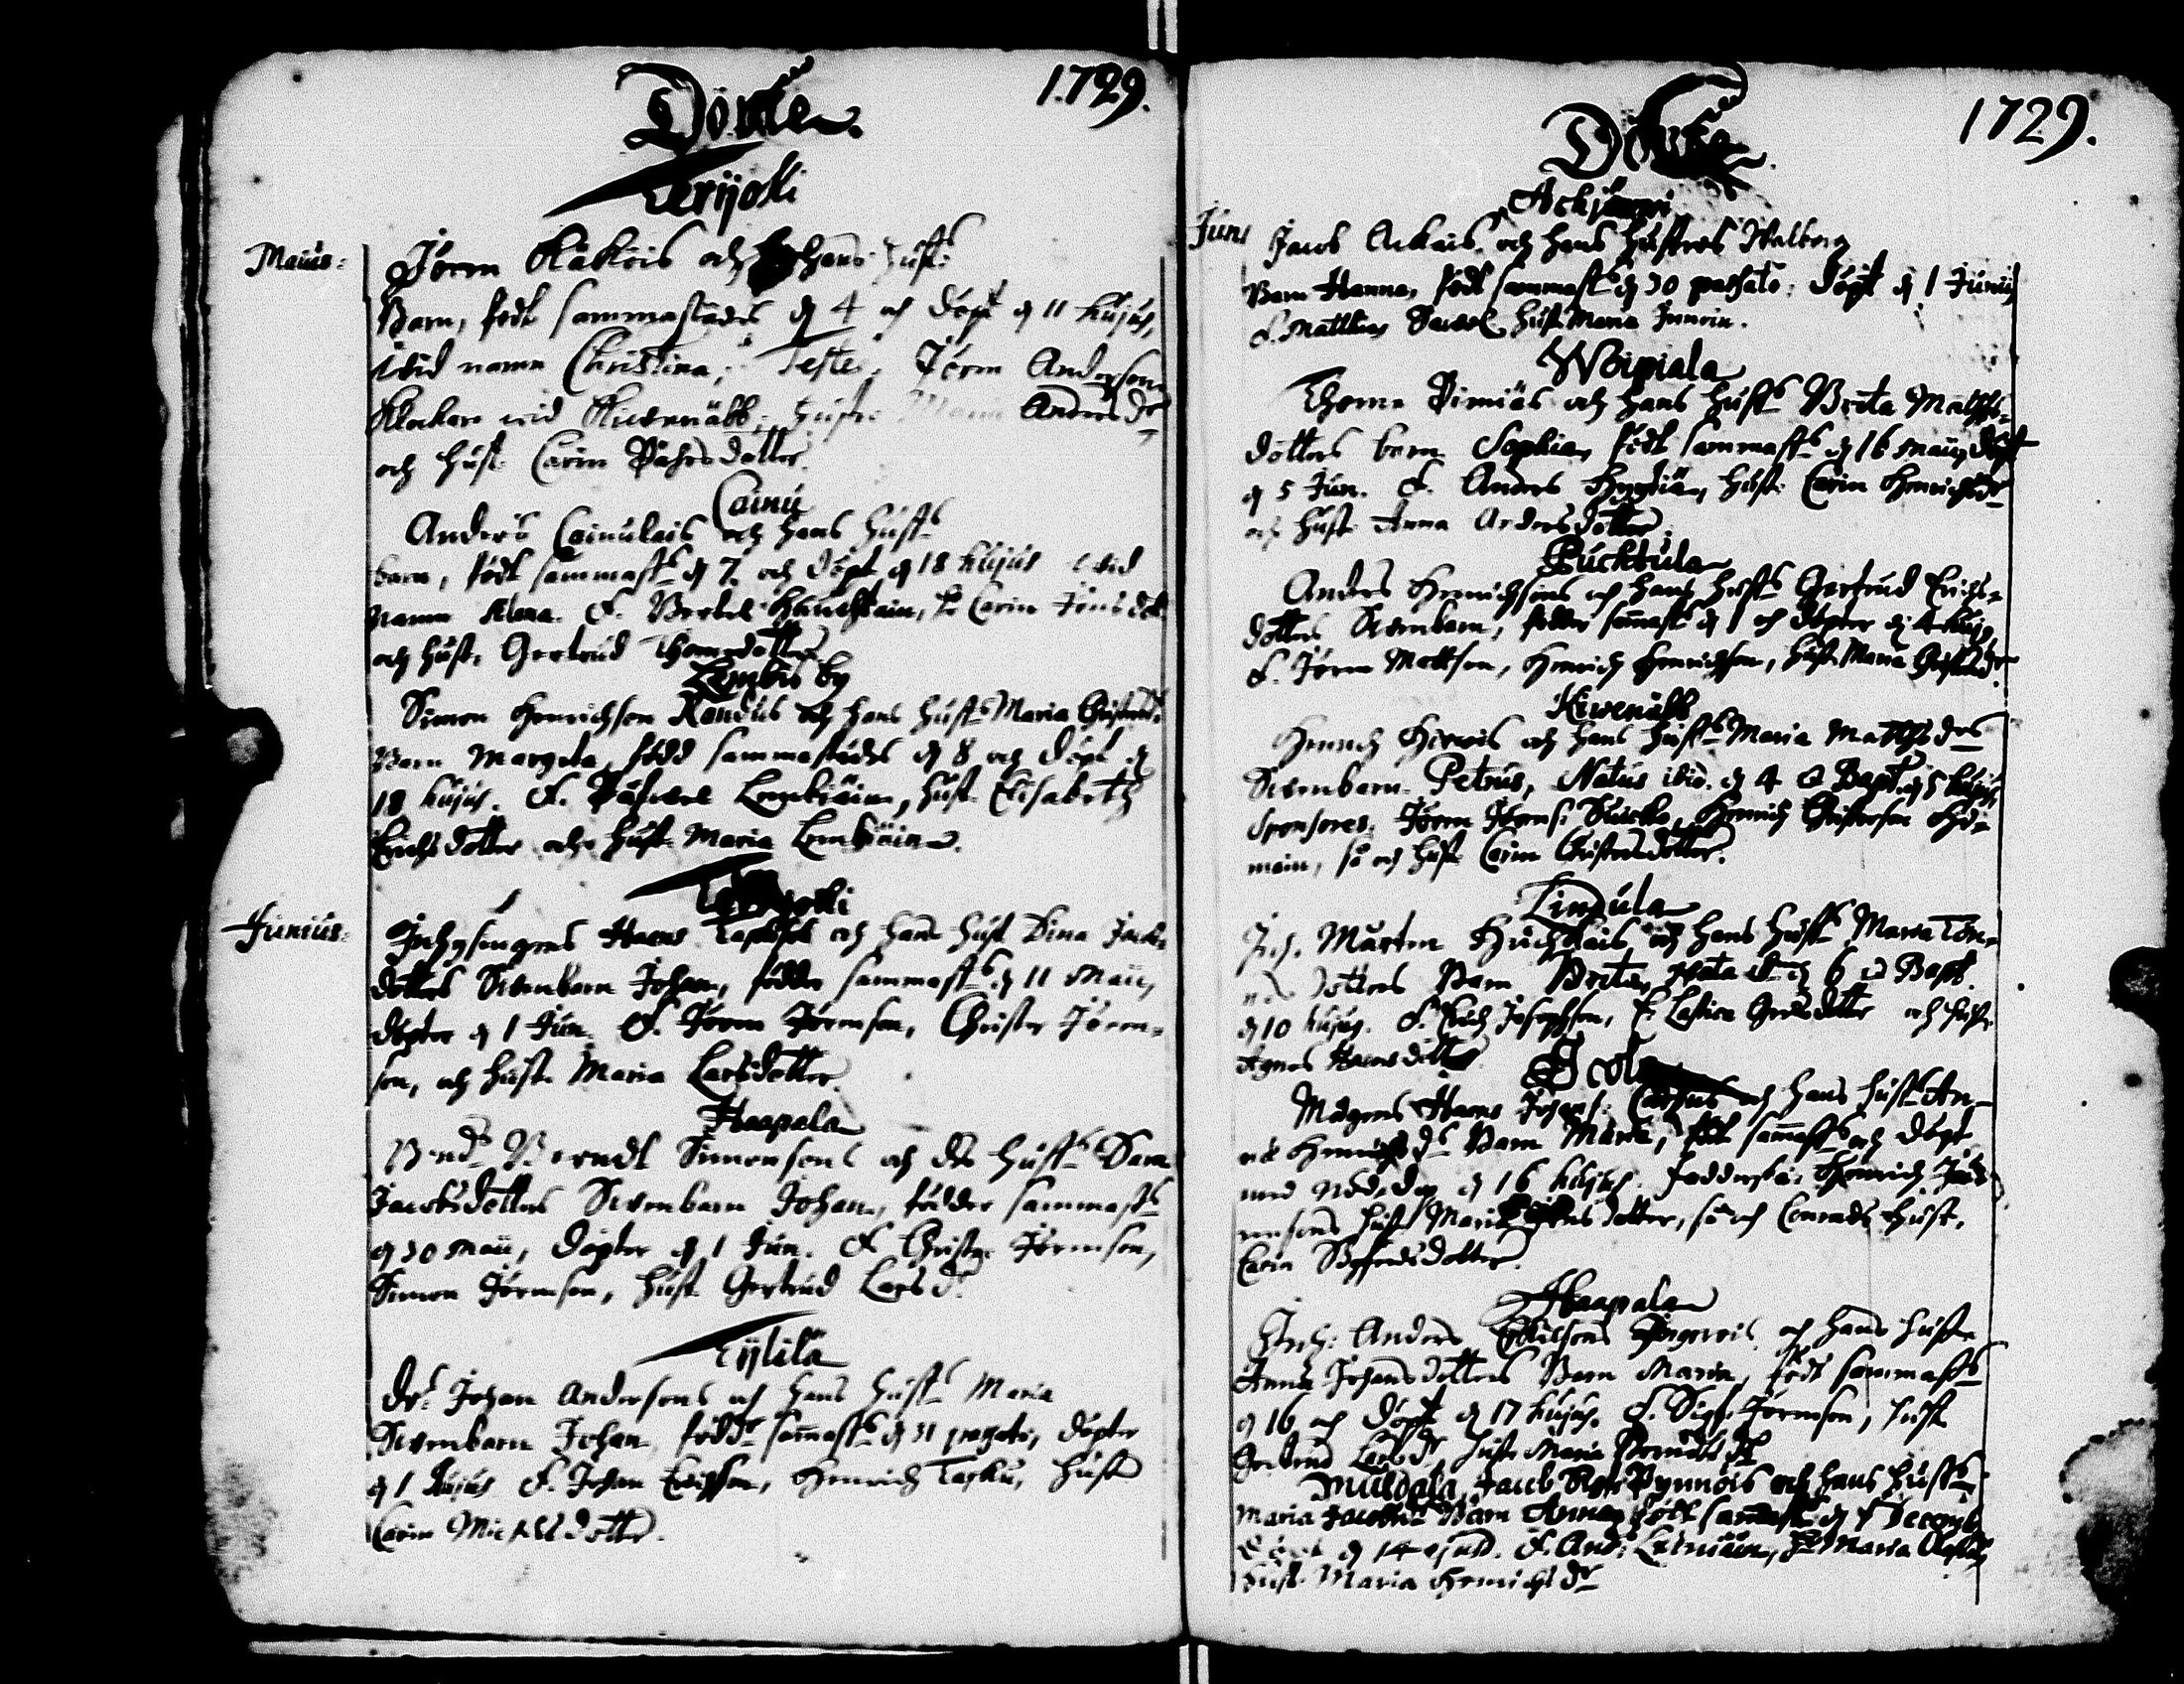 1729.
Döpte
Terijoki
Maiius: Jören Kläkois och hans hust:
Barn, födt sammastädes d 4 och döpt d 11 hujus,
wid namn Christina; Testes. Jören Andersson
Klockare wid Kiwenäbb; hustr: Maria Anders dr
och hust: Carin Påhrsdotter.
Cainu
Anders Cainulais och hans hust
barn, födt sammast d 7 och döpt d 18 hujus wid
namn Elena. F. Bertel Hauchiain, h. Carin Jöns dot.
och hust. Gertrud Thomædotter
Lembis by
Simon Henrichson Kandus och hans hust Maria Christers
Barn Margeta, född sammastädes d 8 och döpt d
18 hujus. F. Påhwel Lembiäin, hust. Elisabeth
Erichsdotter och hust. Maria Lembiäin.
Terijoki
Junius: Inhysingens Hans och hans hust Dina Jacobs
dotters Swenbarn Johan, födder sammast d 11 Maii,
döpter d 1 Jun. F. Jören Jörenson, Christer Jören-
son, och hust. Maria Larsdotter.
Haapala
Bond. Berndt Simonsons och des hust Sara
Jacobsdotters Swenbarn Johan, födder sammast
d 30 Maii, döpter d 1 Jun. F. Christer Jörenson,
Simon Jörenson, hust Gertrud Lars dr.
Tylilä
Dr: Johan Andersons och hans hust Maria
Swenbarn Johan, född sammast d 31 passato, döpter
d 1 hujus F. Johan Erichson, Henrich Tasku, hust
Carin Michelsdotter.
1729.
Döpte
Ackjärwi
Juni Jacob Ackais och hans hustros Walborg
Barn Hanna, födt sammast d 30 passato; döpt d 1 Junii
F. Matthias Hust Maria
Woipiala
Thomas Pimiäs och hans hust Brita Matths-
dotters barn Sophia, födt sammast d 16 Maii, döpt
d 5 Jun. F. Anders hust. Carin Henrichsdr
och hust Anna Andersdotter.
Pucktula
Anders Henrichsons och hans hust Gertrud Erichs-
dotters Swenbarn, födder samast d 1 och döpter d 4 hujus,
F. Jören Mattson, Henrich Henrichson, hust Maria
Kiwenäbb
Henrich Hirwis och hans hust Maria Matths drs
Swenbarn Petrus, Natus ibid. d 4 & Bapt. d 5 hujus
Sponsores. Jören Henrich Christerson
main, så och hust Carin Christersdotter.
Lindula
Inh. Mårten och hans hust Maria Tön-
nes dotters Barn Brita, Nata d 6 & Bapt.
d 10 hujus. F. Erich Josephson, dotter och hust.
Agnes Hansdotter
Icola
Mågens Hans Johans: och hans hust An-
na Henrichs drs Barn Maria, födt samast och döpt
med Nöd-dop d 16 hujus. Faddrar: Henrich Jö-
rensons hust Maria dotter, så och Conrads hust.
Carin Sigfredsdotter.
Haapala
Inh: Anders och hans hust
Anna Johansdotters Barn Maria, födt sammast
d 16 och döpt d 17 hujus. F. Sigf. Jörenson, hust
Gertrud Lars dr, hust Maria Berndts dr
Mulldala, Jacob Pynnöis och hans hust
Maria Jacobs Barn Anna, födt samast d Decemb
döpt d 14 ejusd. F. And: hust Maria
hust. Maria Henrichs dr